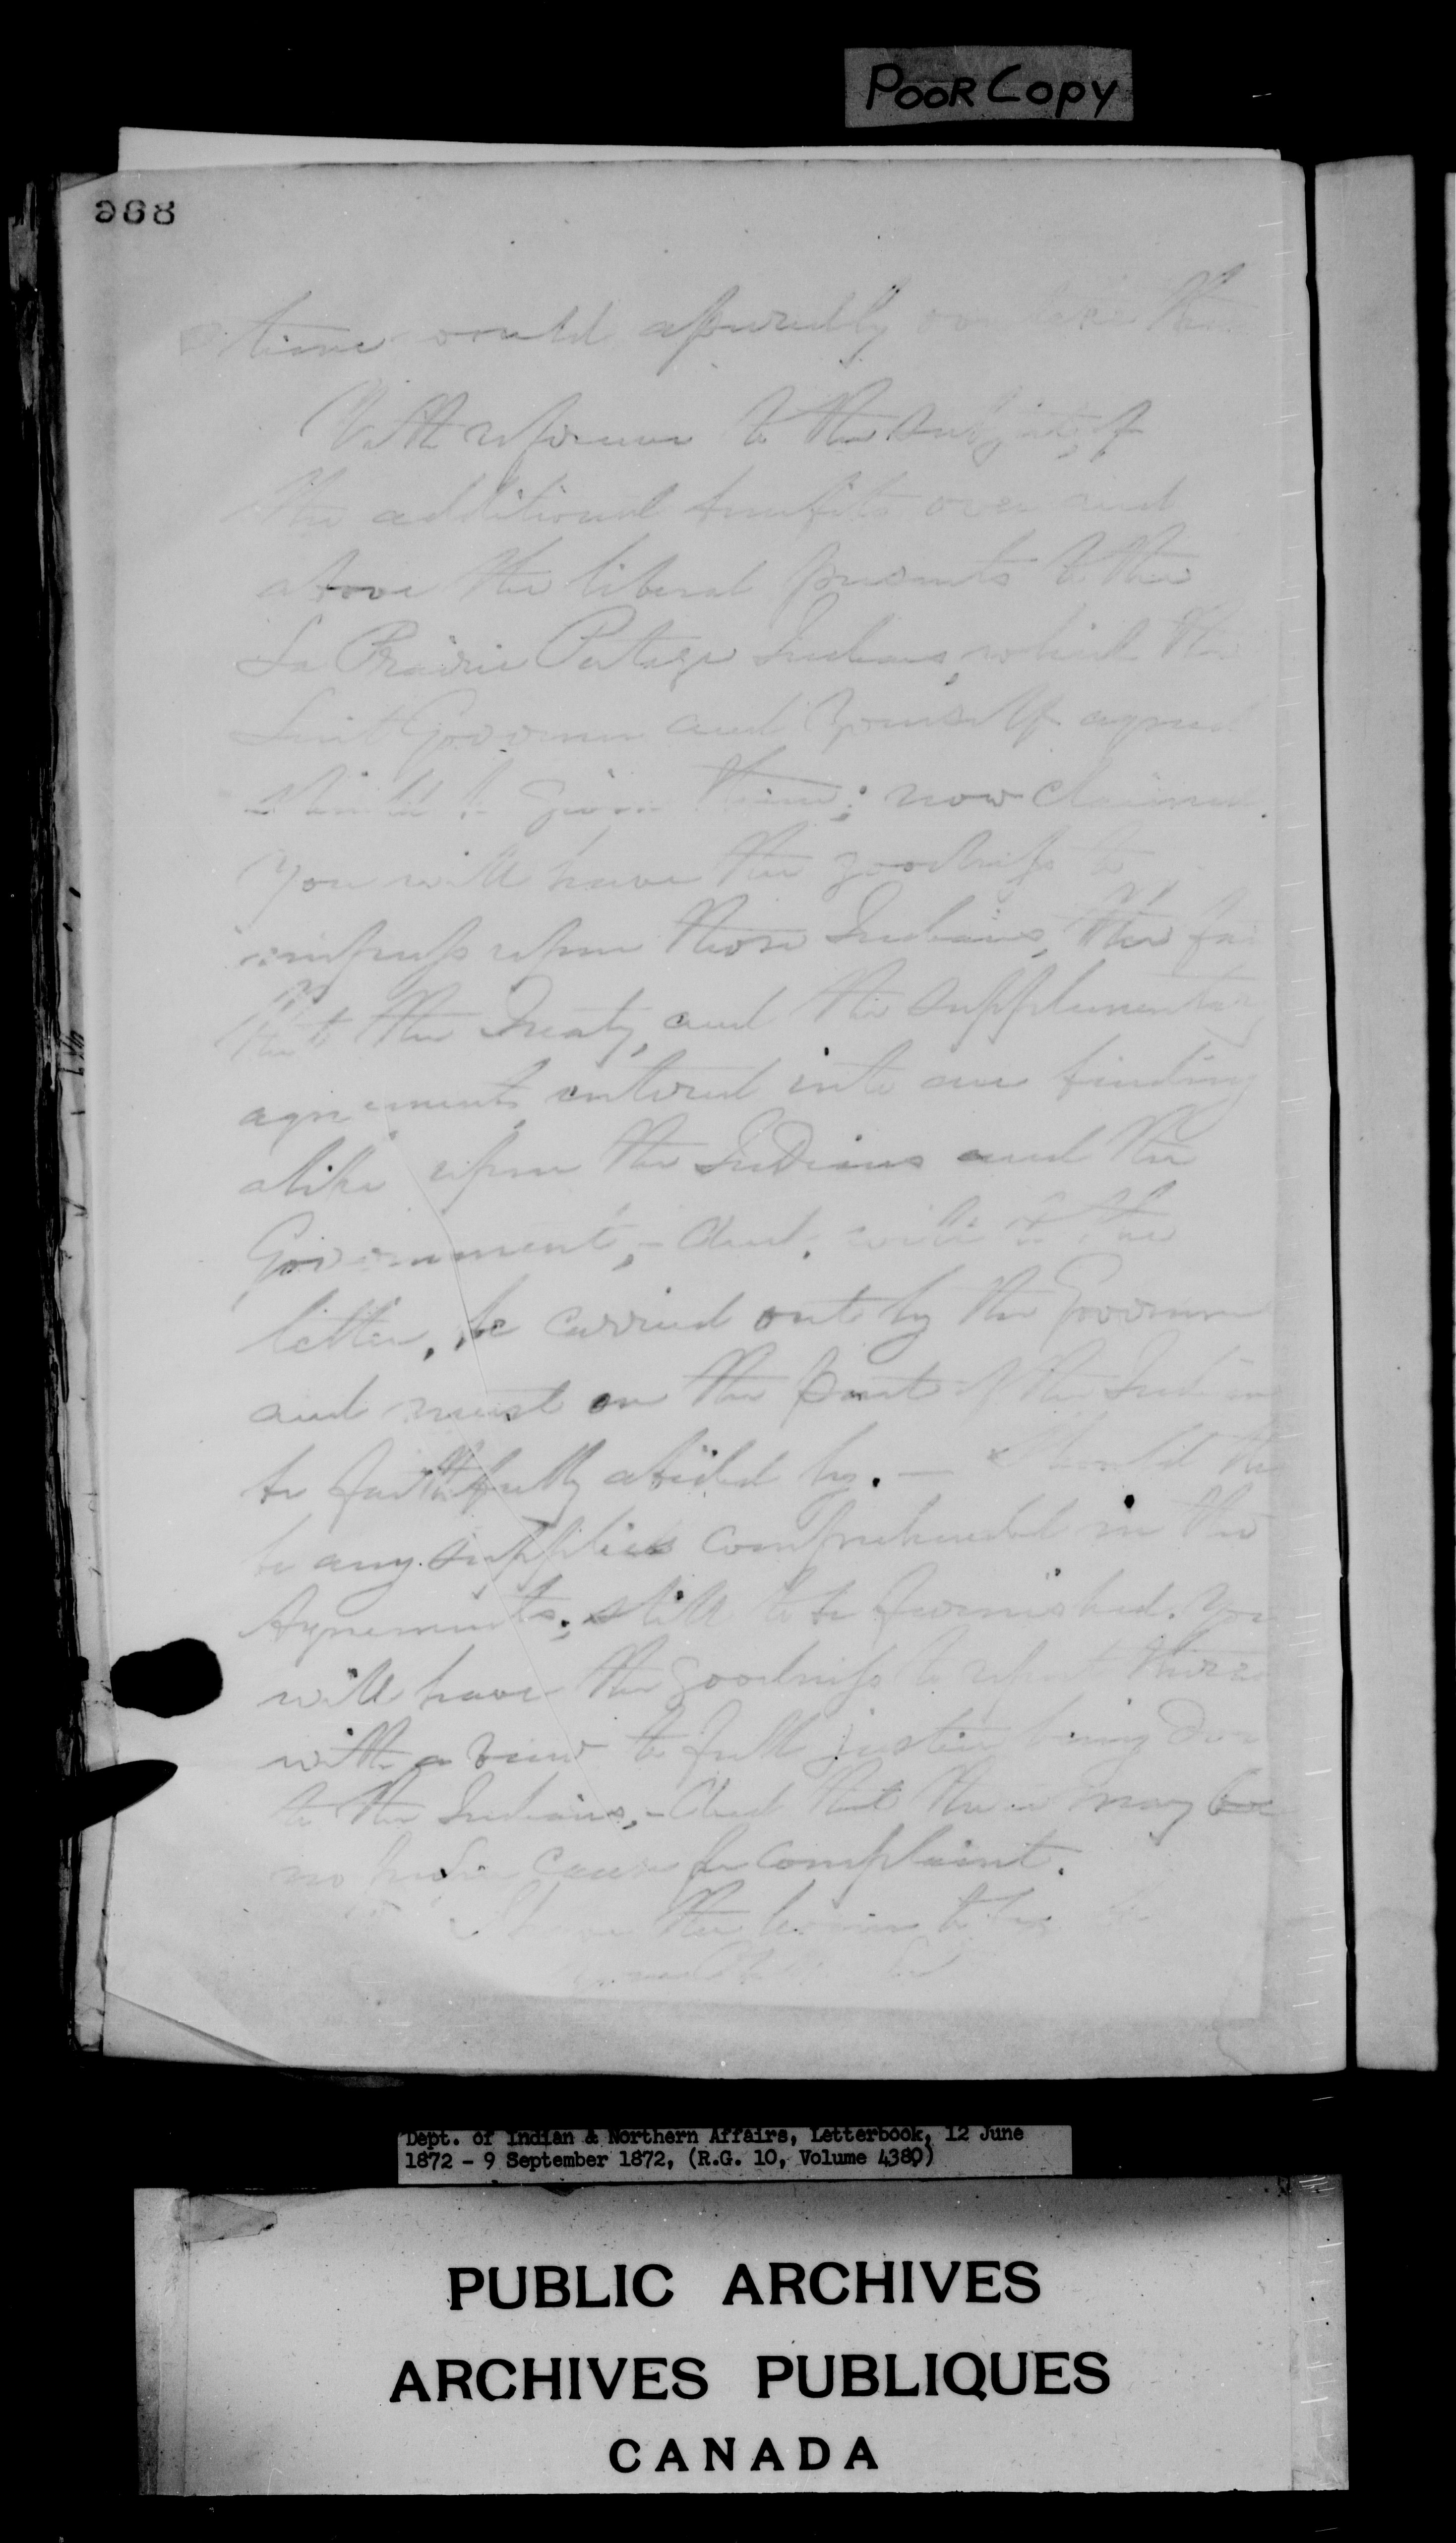 POOR COPY
968
time would assuredly overtake them
With reference to the subject, of
the additional benefits over and
above the liberal presents to the
La Prairie Portage Indians, which the
Lieut Governor and Yourself agreed
should be given them; now claimed.
You will have the goodness to
impress upon those Indians, the fac
that the Treaty, and the supplementary
agreements, entered into are binding
alike upon the Indians and the
Government, - And, will to the
letter, be carried out by the Governm
and must on the part of the Indians
be faithfully abided by. — Should the
be any supplies comprehended in the
Agreements; still to be furnished. You
will have the goodness to report
with a view to full justice being done
to the Indians, - And that there may be
no cause for complaint.
I have the honor to be
Dept. of Indian & Northern Affairs, Letterbook, 12 June
1872 - 9 September 1872, (R.G. 10, Volume 4380)
PUBLIC ARCHIVES
ARCHIVES PUBLIQUES
CANADA